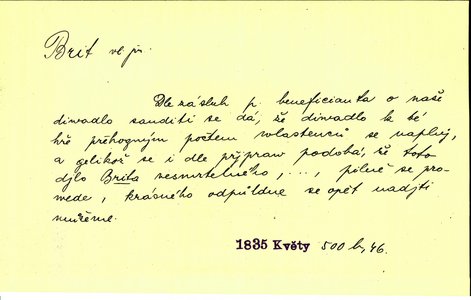 Brit vl. jm.
Dle zásluh p. beneficianta o naše
diwadlo sauditi se dá, že diwadlo k té
hře přehogným počtem wlastenců se naplnj,
a gelikož se i dle přjpraw podobá, že toto
djlo Brita nesmrtelného, ..., pilně se pro-
wede, krásného odpůldne se opět nadjti
můžeme.
1835 Květy 500 b, 46.